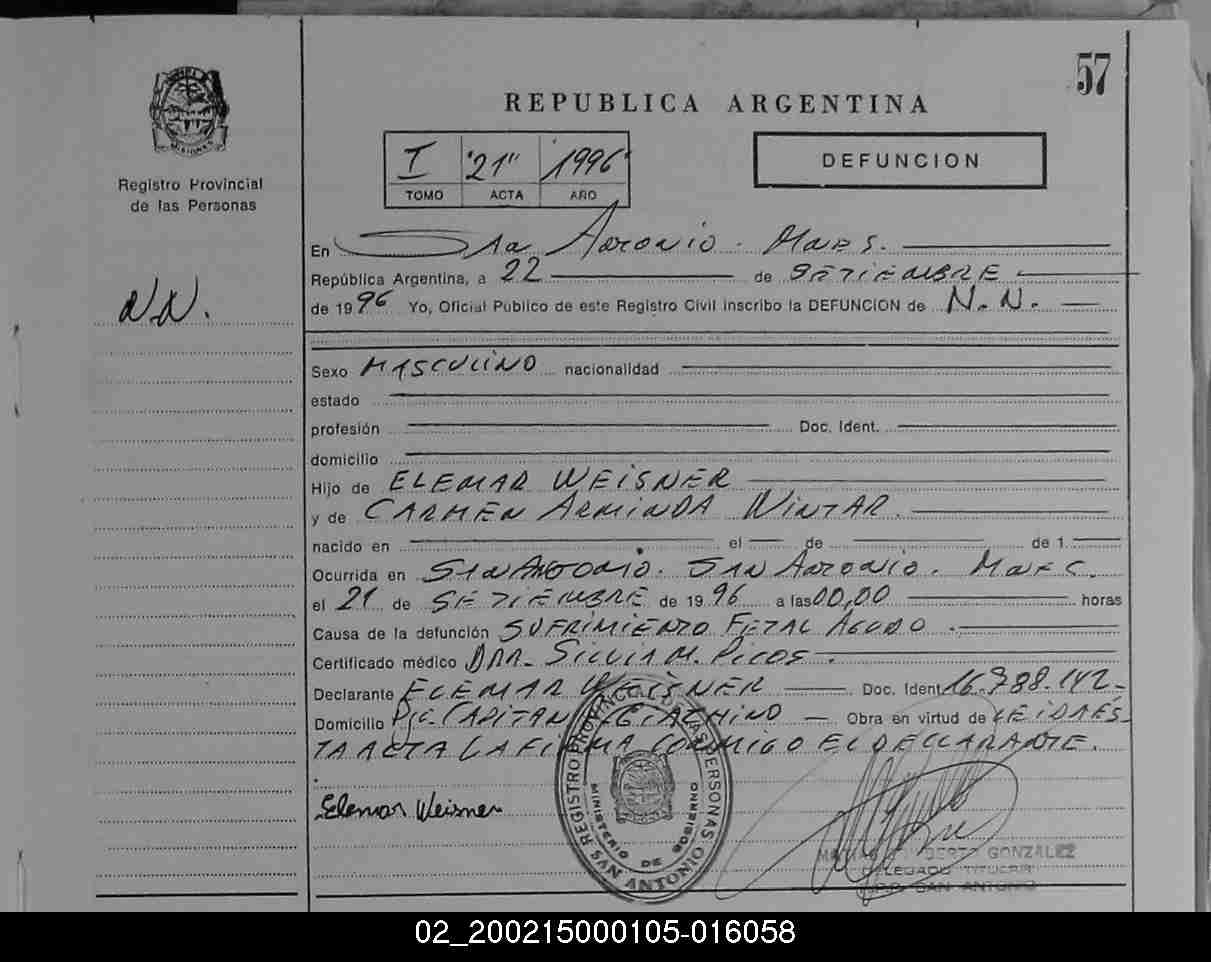 57
REPUBLICA ARGENTINA
MISIONES
Registro Provincial
de las Personas
I "21" 1996
TOMO ACTA AÑO
DEFUNCION
En Sn Antonio. Mnes.
República Argentina, a 22 de SETIEMBRE
de 1996 Yo, Oficial Público de este Registro Civil inscribo la DEFUNCION de N.N.
N.N.
Sexo MASCULINO nacionalidad
estado
profesión Doc. Ident.
domicilio
Hijo de ELEMAR WEISNER
y de CARMEN ARMINDA WINTAR.
nacido en el de de 1
Ocurrida en SAN ANTONIO. SAN ANTONIO.
el 21 de SETIEMBRE de 1996 a las 00,00 horas
Causa de la defunción SUFRIMIENTO FETAL AGUDO.
Certificado médico DRA. SILVIA M.
Declarante ELEMAR WEISNER Doc. Ident 16.988.142
Domicilio Pje. CAPITAN GIACHINO Obra en virtud de LEIDA ES-
TA ACTA LA FIRMA CONMIGO EL DECLARANTE.
Elemar Weisner
REGISTRO PROVINCIAL DE LAS PERSONAS
MINISTERIO DE GOBIERNO
SAN ANTONIO
GONZALEZ
DELEGADO TITULAR
SAN ANTONIO
02_200215000105-016058